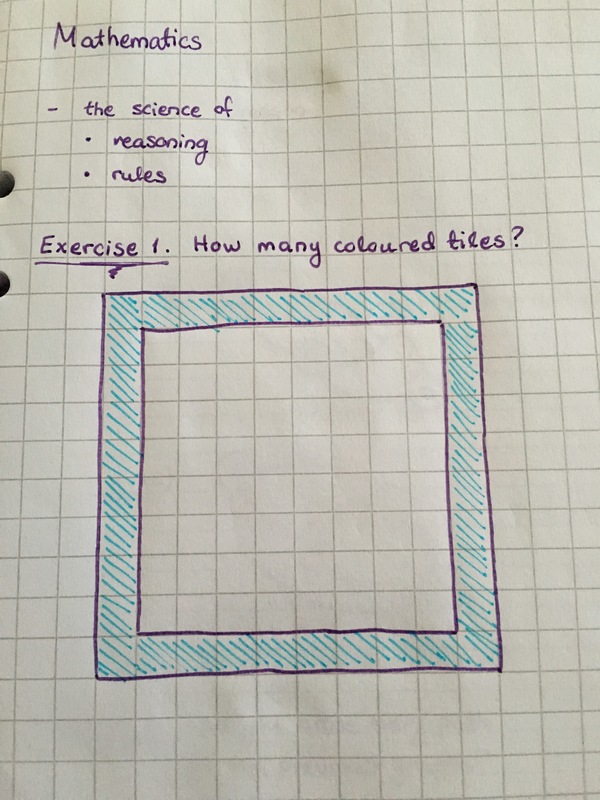 Mathematics
- the science of
• reasoning
• rules
Exercise 1. How many coloured tiles?